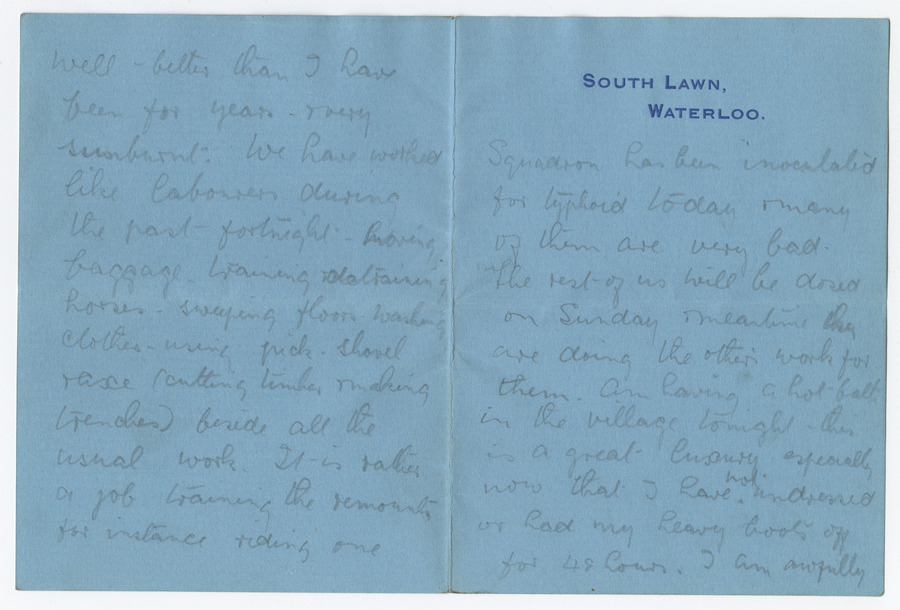 SOUTH LAWN,
WATERLOO.
Squadron has been inoculated
for typhoid today & many
of them are very bad.
The rest of us will be dosed
on Sunday & meantime
are doing the others work for
them. Am having a hot bath
in the village tonight - this
is a great luxury especially
now that I have not undressed
or had my heavy boots off
for 48 hours. I am awfully
well - better than I have
been for years - & very
sunburnt. We have worked
like labourers during
the past fortnight - moving
baggage - training & detraining
horses - sweeping floors - washing
clothes - using pick - shovel
& axe (cutting timber & making
trenches) beside all the
usual work. It is rather
a job training the remounts
for instance riding one